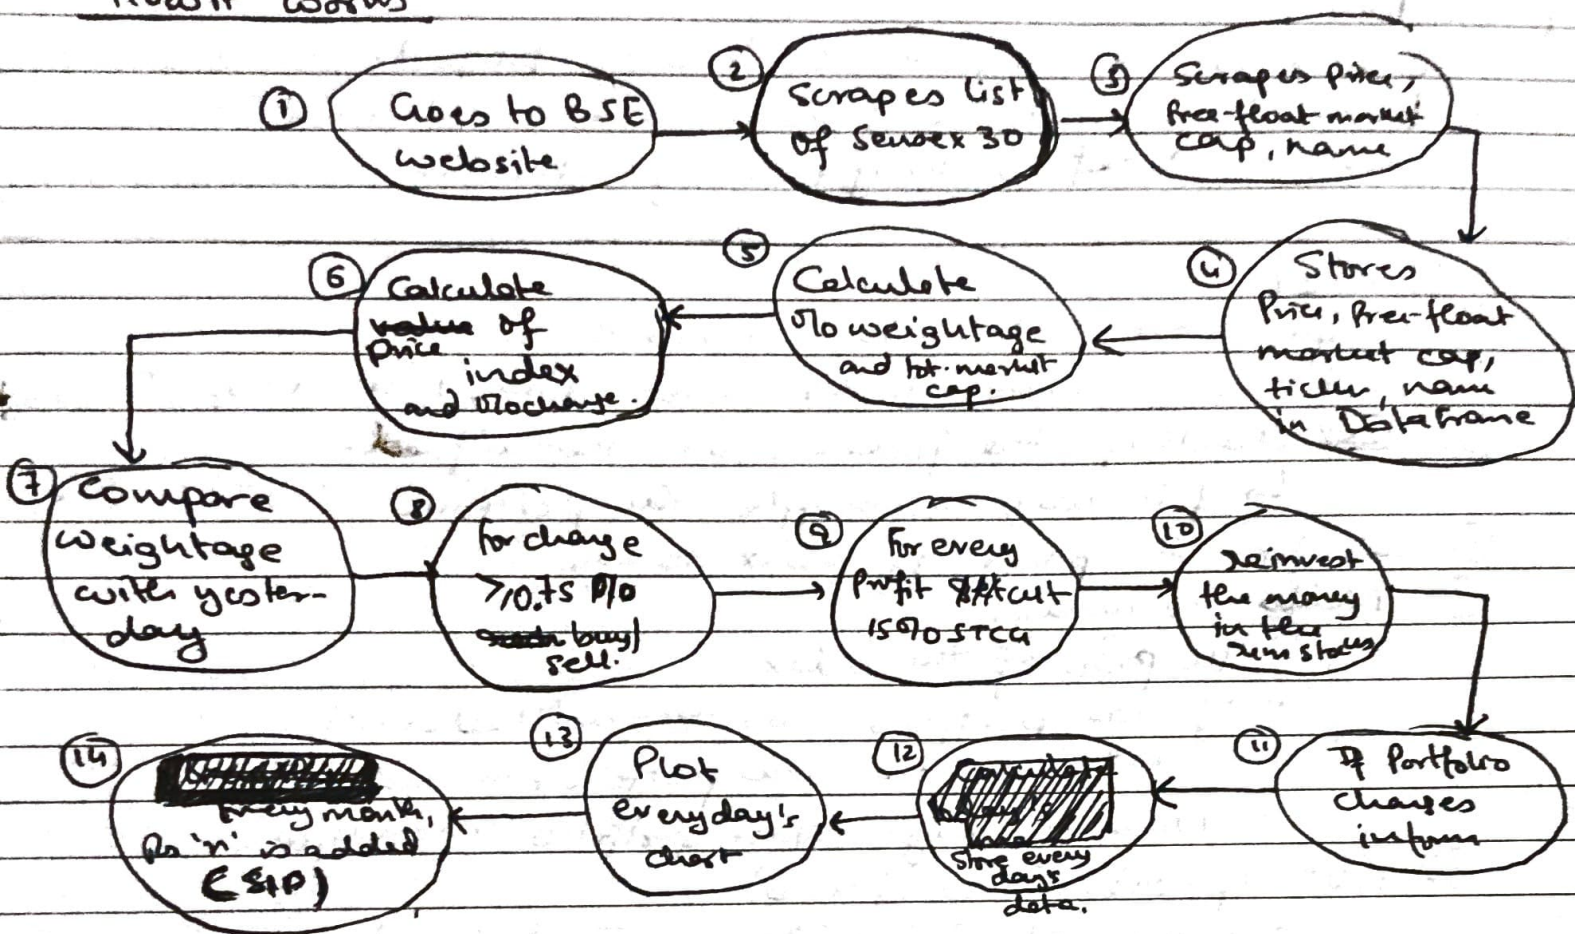 How it works
① Goes to BSE
website
② Scrapes List
of Sensex 30
③ Scrapes price,
free-float market
cap, name
④ Stores
Price, free-float
market cap,
ticker, name
in DataFrame
⑤ Calculate
% weightage
and tot. market
cap.
⑥ Calculate
value of
price
index
and % change.
⑦ Compare
weightage
with yester-
day
⑧ For change
≥ 0.75 %
buy/
sell.
⑨ For every
profit cut
15% STCG
⑩ reinvest
the money
in the
stocks
⑪ If Portfolio
changes
inform
⑫ Store every
day's
data.
⑬ Plot
everyday's
chart
⑭ Every month,
Rs 'n' is added
(SIP)